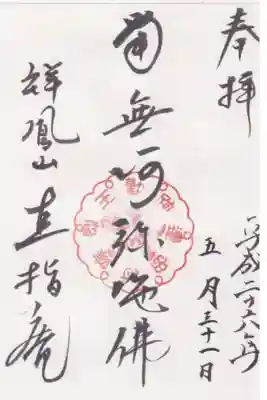 奉拝
平成二十六年
五月三十一日
南無阿弥陀佛
祥鳳山直指庵